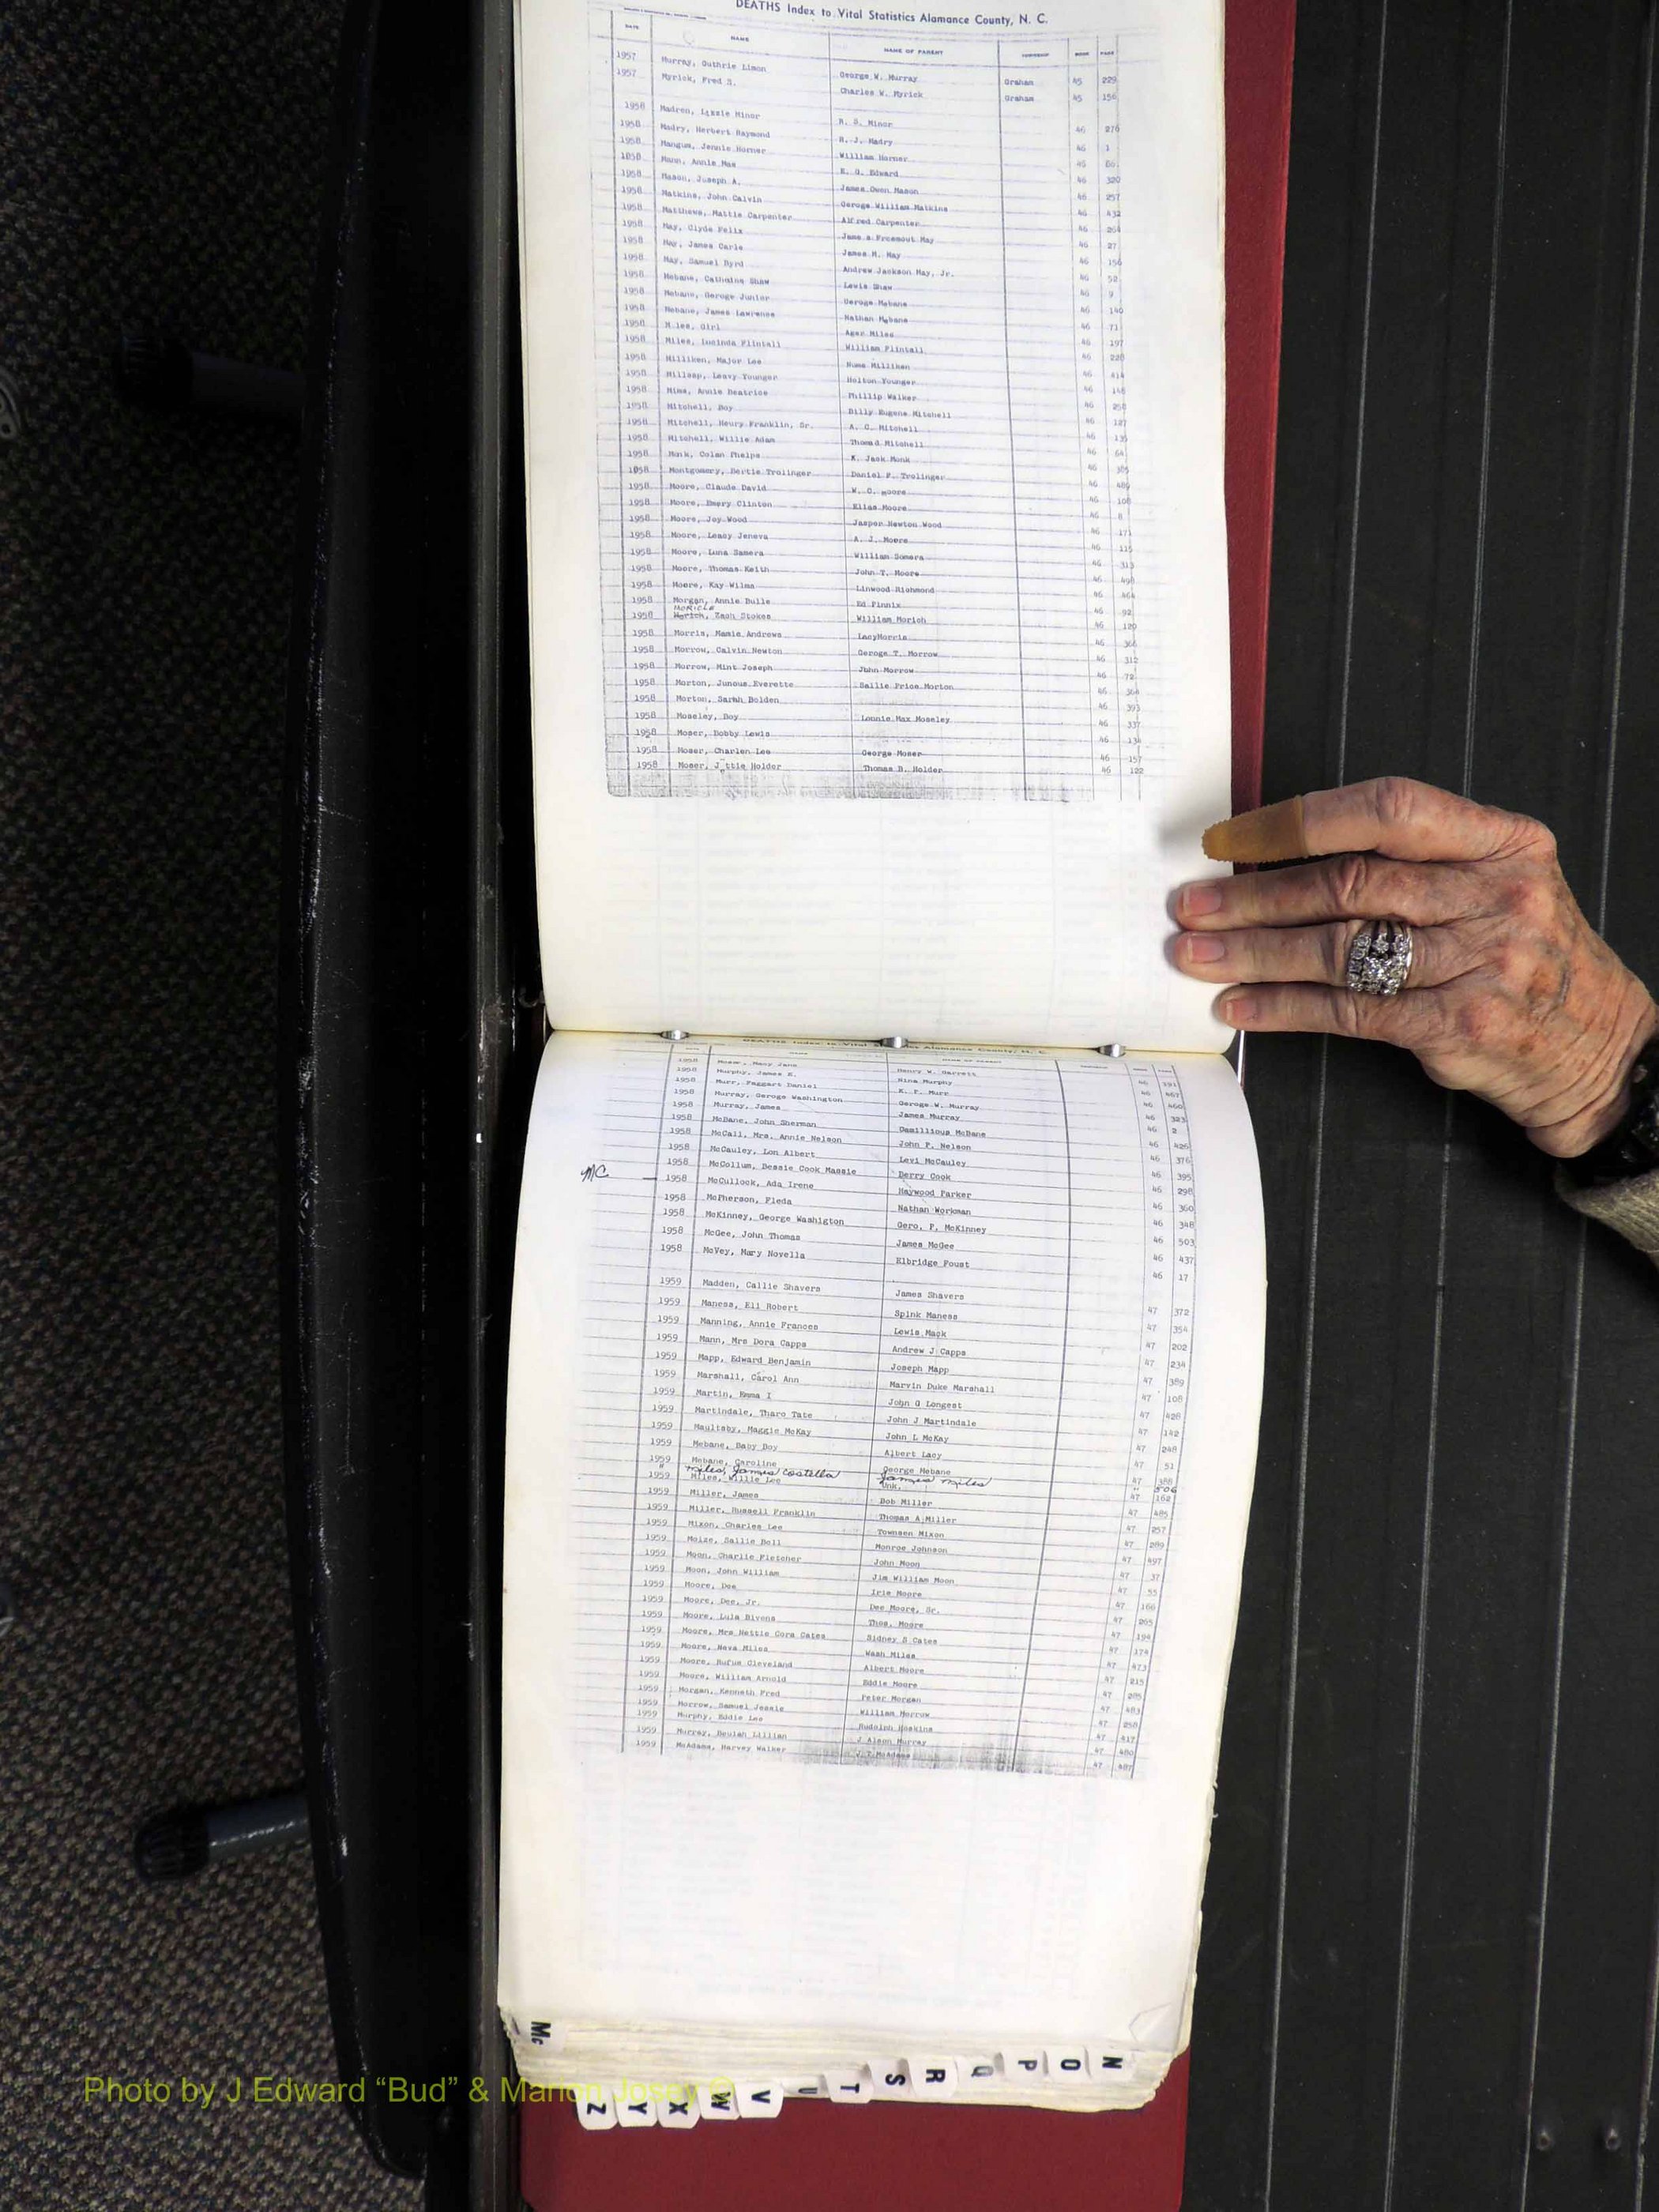 DEATHS Index to Vital Statistics Alamance County, N. C.
DATE NAME NAME OF PARENT TOWNSHIP BOOK PAGE
1957 Murray, Guthrie Limon George W. Murray Graham 45 229
1957 Myrick, Fred S. Charles W. Myrick Graham 45 156
1958 Madren, Lizzie Minor R. S. Minor 46 276
1958 Madry, Herbert Raymond R. J. Madry 46 1
1958 Mangum, Jennie Horner William Horner
1858 Mann, Annie Mae E. G. Edward 46 320
1958 Mason, Joseph A. James Owen Mason 46 257
1958 Matkins, John Calvin Geroge William Matkins 46 432
1958 Matthews, Mattie Carpenter Alfred Carpenter 46 264
1958 May, Clyde Felix James Freemout May 46 27
1958 May, James Carle James M. May 46 156
1958 May, Samuel Byrd Andrew Jackson May, Jr. 46 52
1958 Mebane, Catheine Shaw Lewis Shaw 46 9
1958 Mebane, Geroge Junior Geroge Mebane 46 140
1958 Mebane, James Lawrence Nathan Mebane 46 71
1958 Miles, Girl Agar Miles 46 197
1958 Miles, Lucinda Flintall William Flintall 46 220
1958 Milliken, Major Lee Numa Milliken 46 414
1958 Millsap, Leavy Younger Helton Younger 46 148
1958 Mims, Annie Beatrice Phillip Walker 46 250
1958 Mitchell, Boy Billy Eugene Mitchell 46 127
1958 Mitchell, Heury Franklin, Sr. A. C. Mitchell 46 135
1958 Mitchell, Willie Adam Thomad Mitchell 46 64
1958 Monk, Colan Phelps K. Jack Monk 46 305
1858 Montgomery, Bertie Trolinger Daniel F. Trolinger 46 480
1958 Moore, Claude David W. C. Moore 46 108
1958 Moore, Emery Clinton Elias Moore 46 8
1958 Moore, Joy Wood Jasper Newton Wood 46 171
1958 Moore, Leasy Jeneva A. J. Moore 46 115
1958 Moore, Luna Samera William Somera 46 313
1958 Moore, Thomas Keith John T. Moore 46 498
1958 Moore, Kay Wilma Linwood Richmond 46 464
1958 Morgan, Annie Bulle Ed Finnix 46 92
MORICLE
1958 Morich, Zach Stokes William Morich 46 120
1958 Morris, Mamie Andrews LacyMorris 46 366
1958 Morrow, Calvin Newton Geroge T. Morrow 46 312
1958 Morrow, Mint Joseph John Morrow 46 72
1958 Morton, Junous Everette Sallie Price Morton 46 364
1958 Morton, Sarah Bolden 46 393
1958 Moseley, Boy Lonnie Max Moseley 46 337
1958 Moser, Bobby Lewis 46 134
1958 Moser, Charlen Lee George Moser 46 157
1958 Moser, Jettie Holder Thomas B. Holder 46 122
DEATHS Index to Vital Statistics Alamance County, N. C.
1958 Moser, Mary Jane Henry W. Garrett 46 191
1958 Murphy, James E. Nina Murphy 46 467
1958 Murr, Faggart Daniel K. F. Murr 46 460
1958 Murray, Geroge Washington Geroge W. Murray 46 323
1958 Murray, James James Murray 46 2
1958 McBane, John Sherman Camillious McBane 46 426
1958 McCall, Mrs. Annie Nelson John P. Nelson 46 376
1958 McCauley, Lon Albert Levi McCauley 46 395
1958 McCollum, Bessie Cook Massie Berry Cook 46 298
MC 1958 McCullock, Ada Irene Haywood Parker 46 360
1958 McPherson, Fleda Nathan Workman 46 348
1958 McKinney, George Washigton Gero. P. McKinney 46 503
1958 McGee, John Thomas James McGee 46 437
1958 McVey, Mary Novella Elbridge Foust 46 17
1959 Madden, Callie Shavers James Shavers 47 372
1959 Maness, Eli Robert Spink Maness 47 354
1959 Manning, Annie Frances Lewis Mack 47 202
1959 Mann, Mrs Dora Capps Andrew J Capps 47 234
1959 Mapp, Edward Benjamin Joseph Mapp 47 389
1959 Marshall, Carol Ann Marvin Duke Marshall 47 108
1959 Martin, Emma I John G Longest 47 428
1959 Martindale, Tharo Tate John J Martindale 47 142
1959 Maultsby, Maggie McKay John L McKay 47 248
1959 Mebane, Baby Boy Albert Lacy 47 51
1959 Mebane, Caroline George Mebane 47 386
" Miles, James Costella James Miles " 506
1959 Miles, Willie Lee Unk. 47 162
1959 Miller, James Bob Miller 47 485
1959 Miller, Russell Franklin Thomas A Miller 47 257
1959 Mixon, Charles Lee Townsen Mixon 47 289
1959 Moize, Sallie Bell Monroe Johnson 47 497
1959 Moon, Charlie Fletcher John Moon 47 37
1959 Moon, John William Jim William Moon 47 55
1959 Moore, Dee Irie Moore 47 166
1959 Moore, Dee, Jr. Dee Moore, Sr. 47 265
1959 Moore, Lula Bivens Thos. Moore 47 194
1959 Moore, Mrs Nettie Cora Cates Sidney S Cates 47 174
1959 Moore, Neva Miles Wash Miles 47 473
1959 Moore, Rufus Cleveland Albert Moore 47 215
1959 Moore, William Arnold Eddie Moore 47 285
1959 Morgan, Kenneth Fred Peter Morgan 47 483
1959 Morrow, Samuel Jessie William Morrow 47 258
1959 Murphy, Eddie Lee Rudolph Hoskins 47 417
1959 Murray, Beulah Lillian J Alson Murray 47 480
1959 McAdams, Harvey Walker J. T. McAdams 47 487
Mc N O P Q R S T U V W X Y Z
Photo by J Edward “Bud” & Marion Josey ©